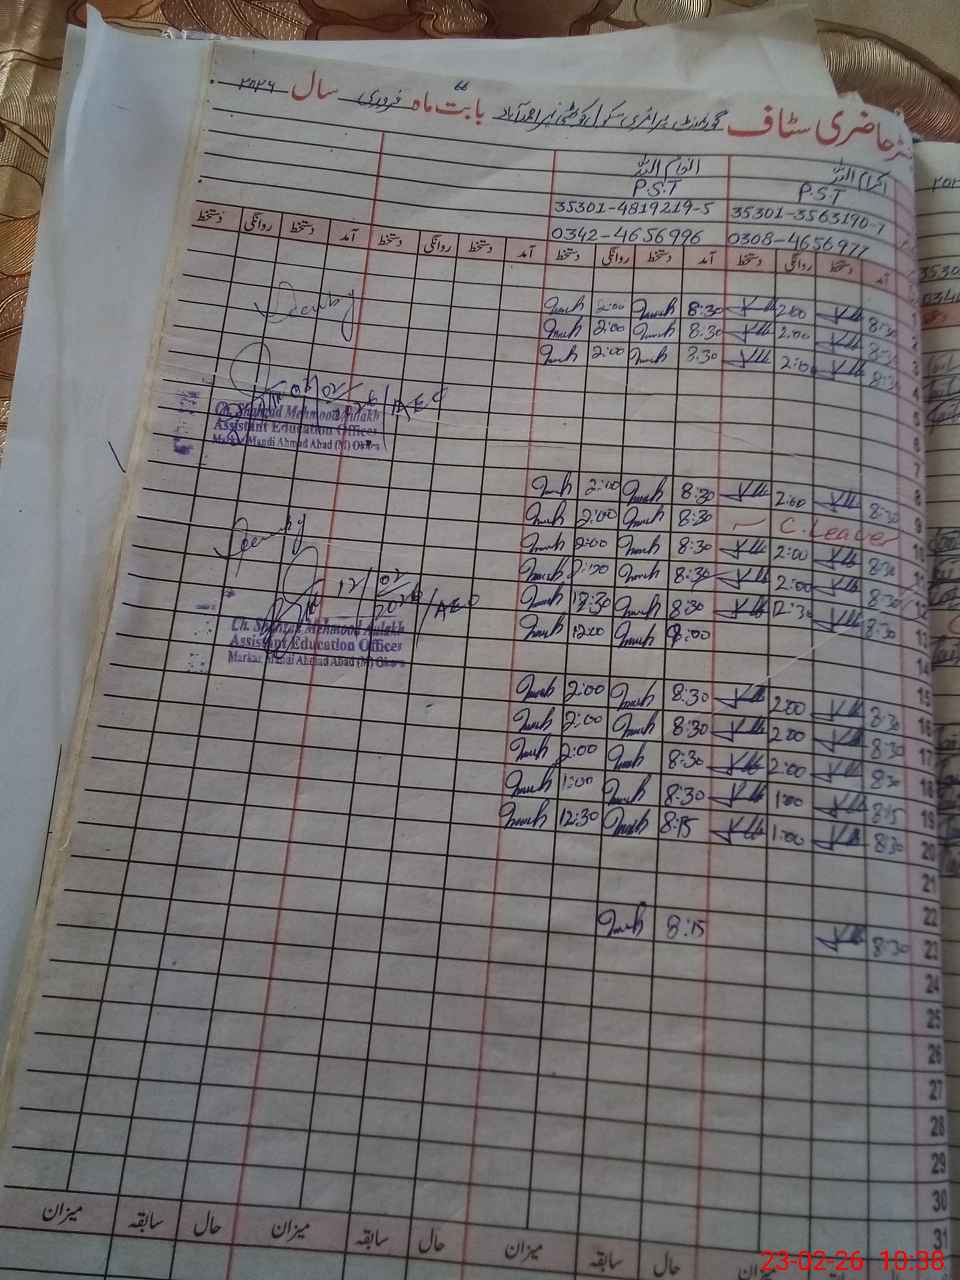 رجسٹر حاضری سٹاف گورنمنٹ پرائمری سکول بابت ماہ فروری سال ۲۰۲۶
اکرام اللہ انعام اللہ
P.S.T P.S.T
35301-3563190-7 35301-4819219-5
0308-4656977 0342-4656996
آمد دستخط روانگی دستخط آمد دستخط روانگی دستخط آمد دستخط روانگی دستخط آمد دستخط روانگی دستخط
1
2 8:30 2:00 8:30 2:00
3 8:30 2:00 8:30 2:00
4 8:30 2:00 8:30 2:00
5
6
7
8
9 8:30 2:00 8:30 2:00
10 C.Leave 8:30 2:00
11 8:30 2:00 8:30 2:00
12 8:30 2:00 8:30 2:00
13 8:30 12:30 8:30 12:30
14 8:00 12:00
15
16 8:30 2:00 8:30 2:00
17 8:30 2:00 8:30 2:00
18 8:30 2:00 8:30 2:00
19 8:15 1:00 8:30 1:00
20 8:30 1:00 8:15 12:30
21
22
23 8:30 8:15
24
25
26
27
28
29
30
31
Ch. Shahzad Mehmood Aulakh
Assistant Education Officer
Markaz Mandi Ahmad Abad (M) Okara
12/02/2026/AEO
Ch. Shahzad Mehmood Aulakh
Assistant Education Officer
Markaz Mandi Ahmad Abad (M) Okara
میزان حال سابقہ میزان حال سابقہ میزان حال سابقہ میزان
23-02-26 10:38